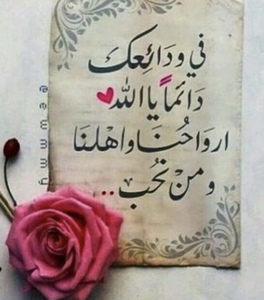 في ودَائِعك
دَائماً يا الله
اروَاحُنَا واهْلنَا
ومنْ نُحُب..